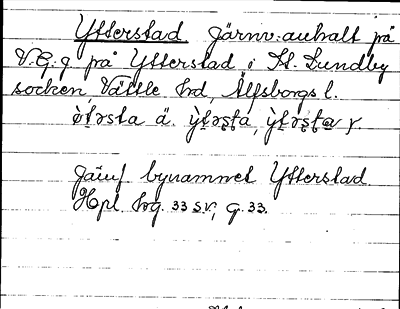 Ytterstad Järnv.anhalt på
V.G.g. på Ytterstad i St. Lundby
socken Vättle hd, Älfsborgs l.
ø̀t̯ərsta ä. ỳt̯ərs̯t̯a, ỳt̯ərs̯t̯a y.
Jämf bynamnet Ytterstad.
Hpl. hrg. 33 SV, G. 33.